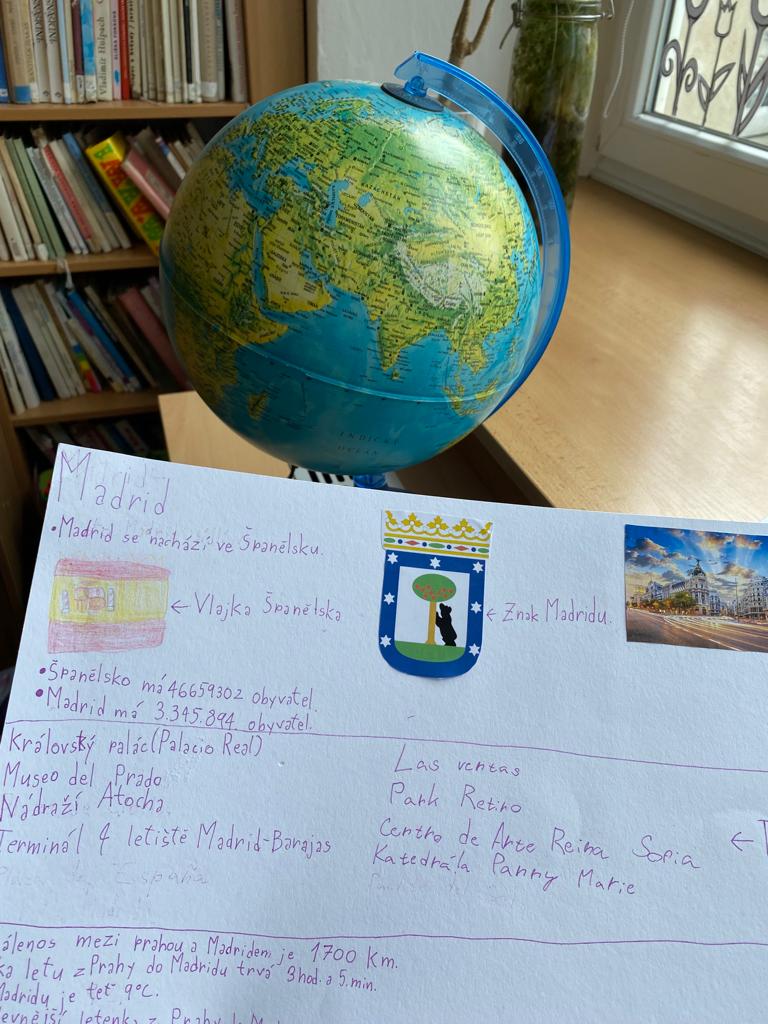 Vladimír Hulpach
KAZACHSTÁN
INDICKÝ
OCEÁN
Madrid
•Madrid se nachází ve Španělsku.
← Vlajka Španělska
← Znak Madridu.
•Španělsko má 46659302 obyvatel.
•Madrid má 3.345.894 obyvatel.
Královský palác (Palacio Real)
Museo del Prado
Nádraží Atocha
Terminál 4 letiště Madrid-Barajas
Plaza de España
Las ventas
Park Retiro
Centro de Arte Reina Sofia
Katedrála Panny Marie
←
álenos mezi prahou a Madridem je 1700 km.
ka letu z Prahy do Madridu trvá 3hod. a 5.min.
Madridu je teť 9°C.
levnější letenka z Prahy do